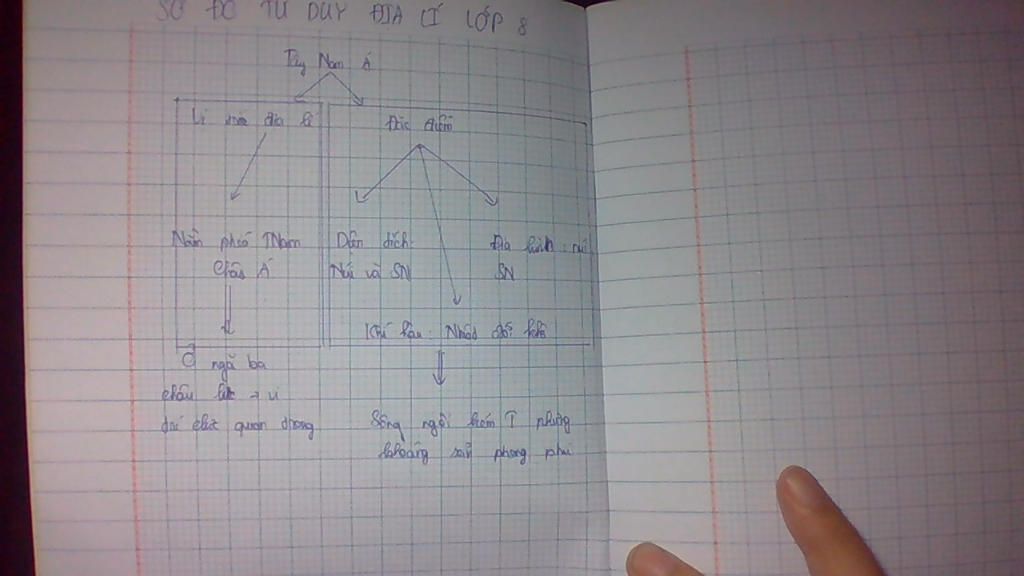 SƠ ĐỒ TƯ DUY ĐỊA LÍ LỚP 8
Tây Nam Á
Vị trí địa lí
Đặc điểm
Nằm phía TNam
Châu Á
Diện tích:
Núi và SN
Địa hình: núi
SN
Khí hậu: Nhiệt đới khô
Ở ngã ba
châu lục → vị
trí chiến quan trọng
Sông ngòi kém T nhưng
khoáng sản phong phú